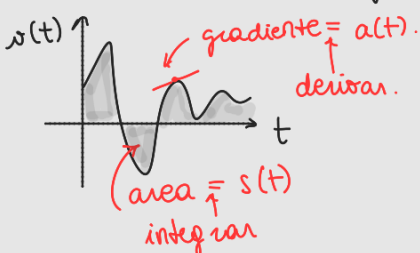 v(t)
gradiente = a(t).
derivar.
t
area = s(t)
integrar